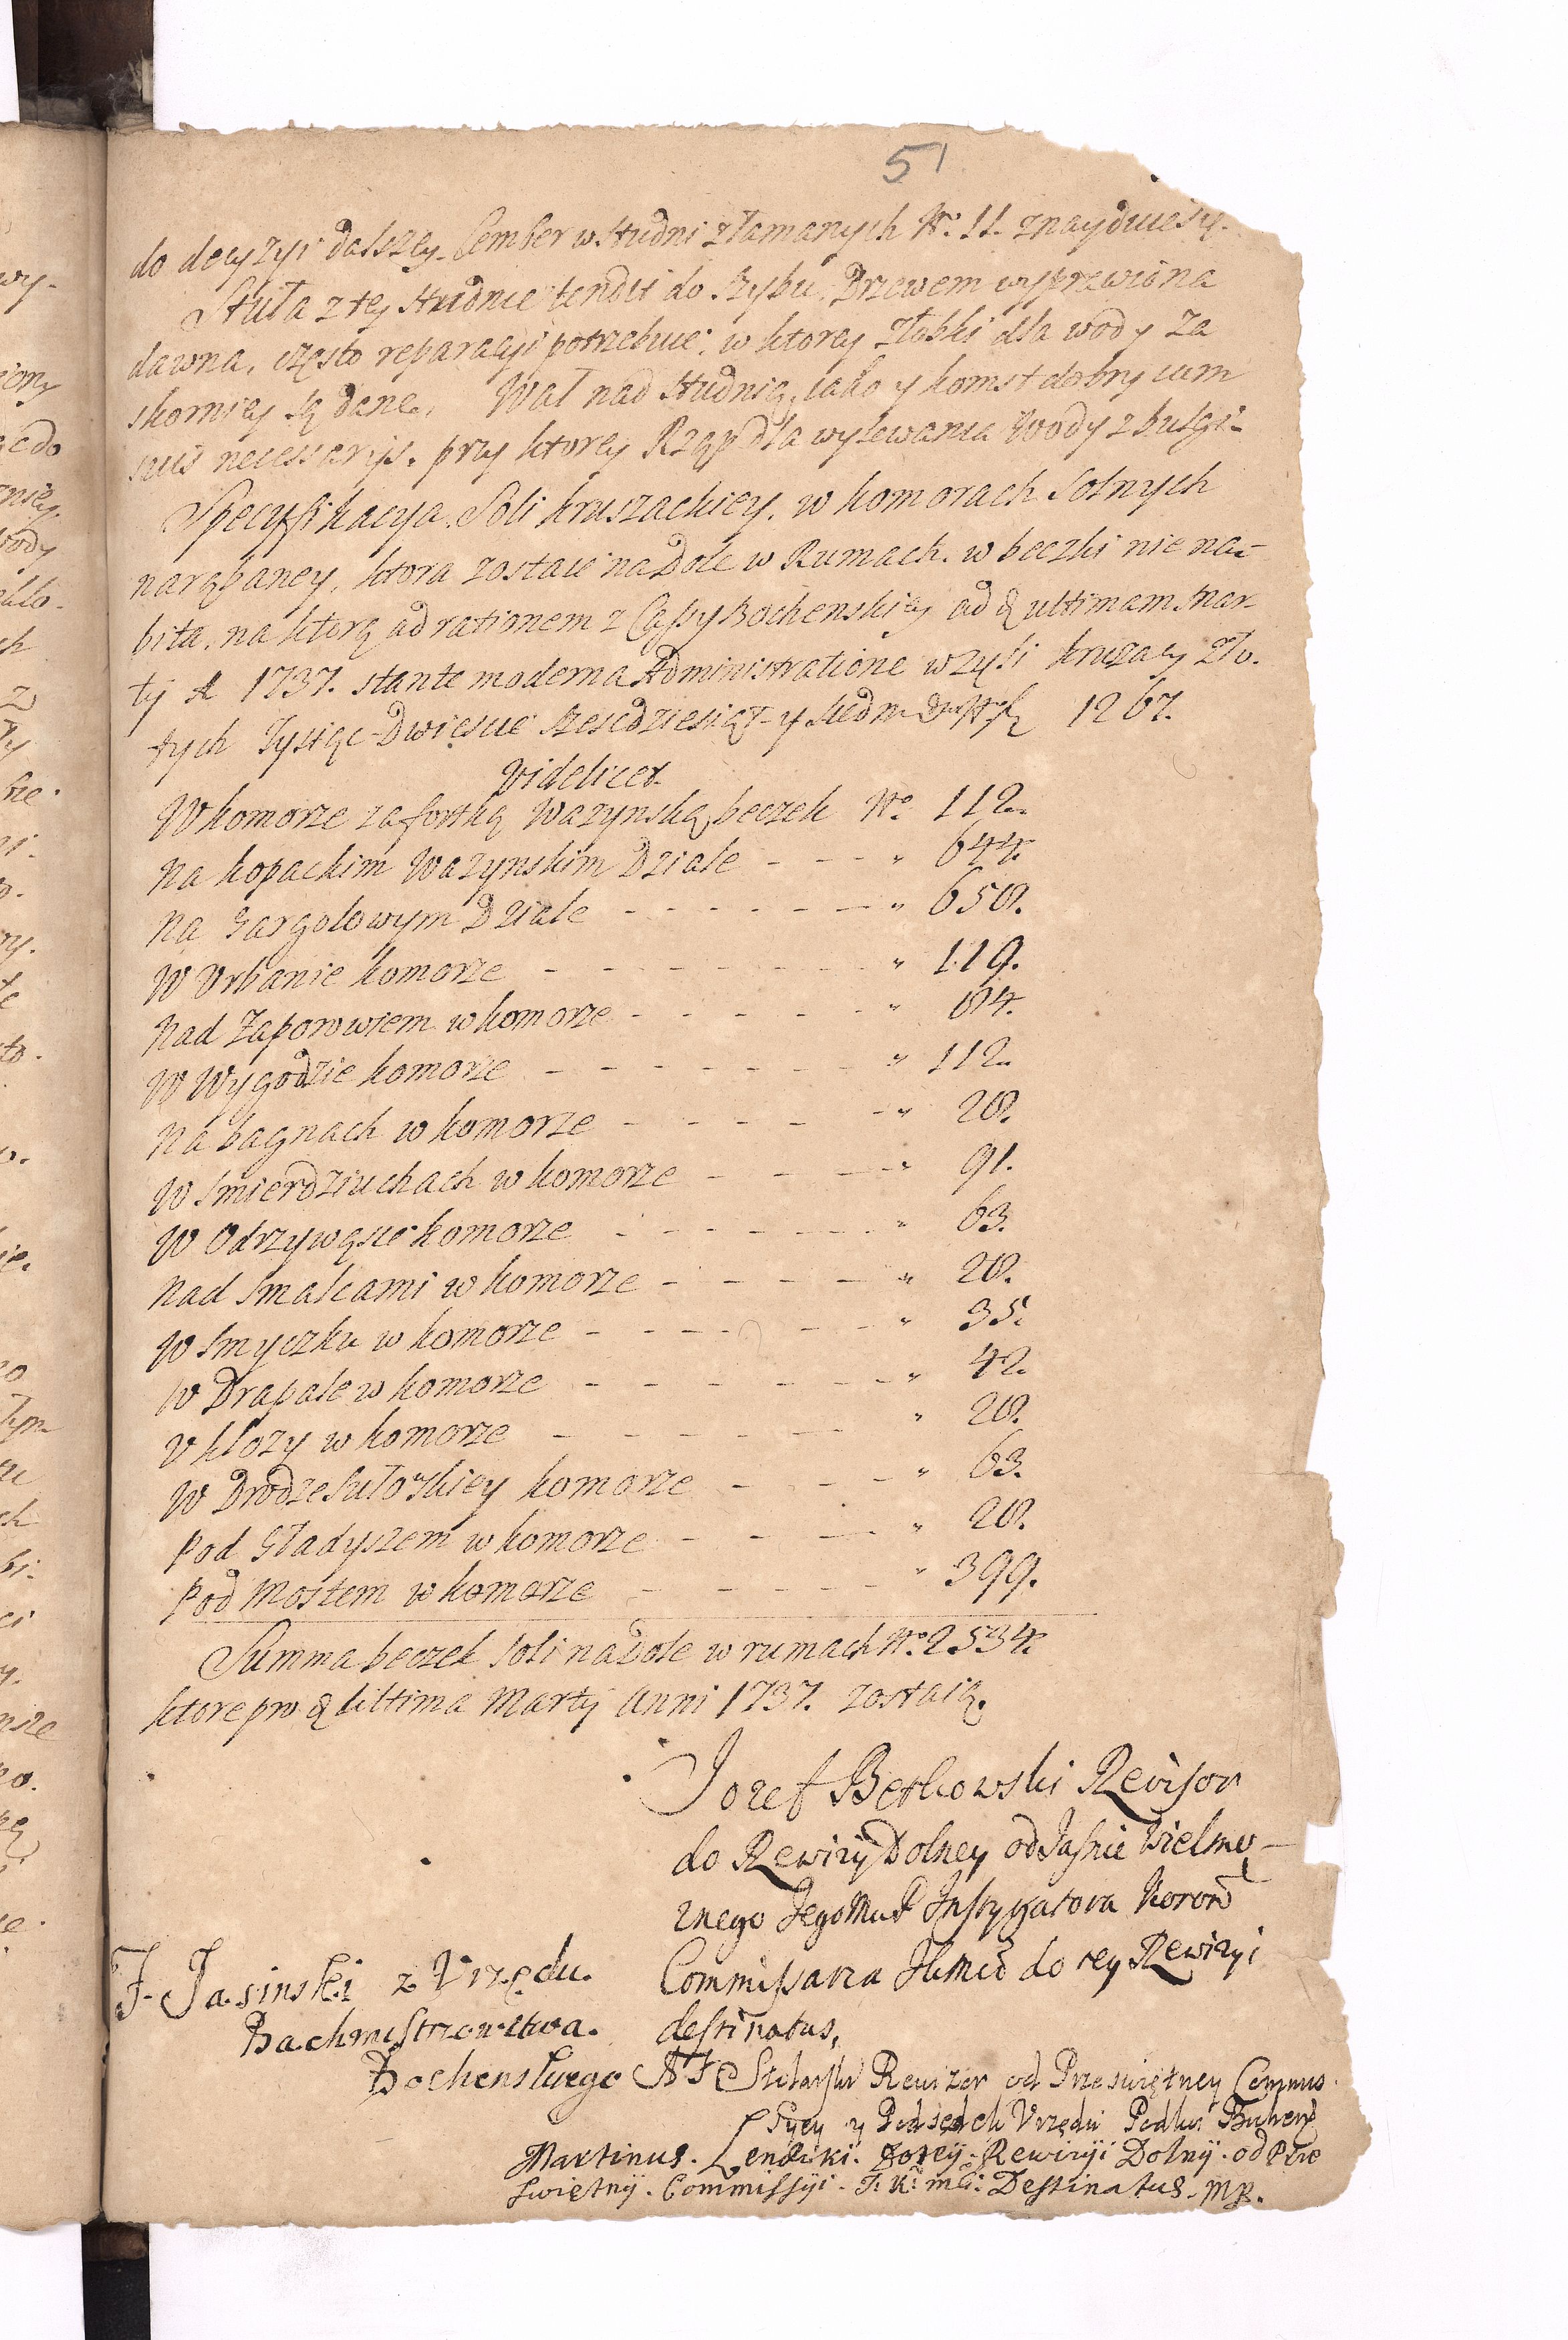 51
do decyzyi dalszey. Cember w studni złamanych No. 11. znayduie się.
Stuła z tey studnie tendit do Szybu. Drzewem wyprawiona
dawna, często reparacyi potrzebuie, w ktorey Złobki dla wody za
skorniey są dane. Wał nad studnią, iako y komst dobry cum
suis necessarijs. przy ktorey Rząp dla wylewania Wody z bulgi-
Specyfikacya Soli kruszackiey, w komorach Solnych
narąbaney, ktora zostaie na Dole w Rumach. w beczki nie na-
bita, na ktorą ad rationem z Cassy Bochenskiey ad & ultimam Mar-
tij A 1737. stante moderna Administratione wzyli kruszacy Zło-
tych Tysiąc Dwieście sześcdziesiąt y siedm 1267.
Videlicet
W komorze za fortką Wazynską beczek No. 112.
Na kopackim Wazynskim Dziale - - - " 644.
Na Gargolowym Dziale - - - - - - " 658.
W Urbanie komorze - - - - - - - " 119.
Nad Zaporowiem w komorze - - - - - " 84.
W Wygodzie komorze - - - - - - - " 112.
Na bagnach w komorze - - - - - " 28.
W Smierdziuchach w komorze - - - - " 91.
W Odrzywąsie komorze - - - - - - " 63.
Nad Smalcami w komorze - - - - - " 28.
W Smyczku w komorze - - - - - - " 35.
W Drapale w komorze - - - - - - - " 42.
U kłozy w komorze - - - - - - " 28.
W Drodze Sułowskiey komorze - - - " 63.
Pod Gładyszem w komorze - - - - " 28.
Pod Mostem w komorze - - - - - - " 399.
Summa beczek soli na Dole w rumach No. 2534.
ktore pro & ultima Martij Anni 1737. zostaią.
Jozef Betkowski Rewisor
do Rewizyi Dolney od Jasnie Wielmo-
znego Jego Instygatora Koron
Commissarza do tey Rewizyi
destinatus,
J. Jasinski z Urzędu.
Bachmistrzowstwa.
Bochenskiego
Rewizor od Przeświętney Commis
Syey y Podsędek Urzędu
Martinus. Rewizyi Dolny. od Prze
Swiętnij. Commissyi. J: K: mci: Destinatus. MP.